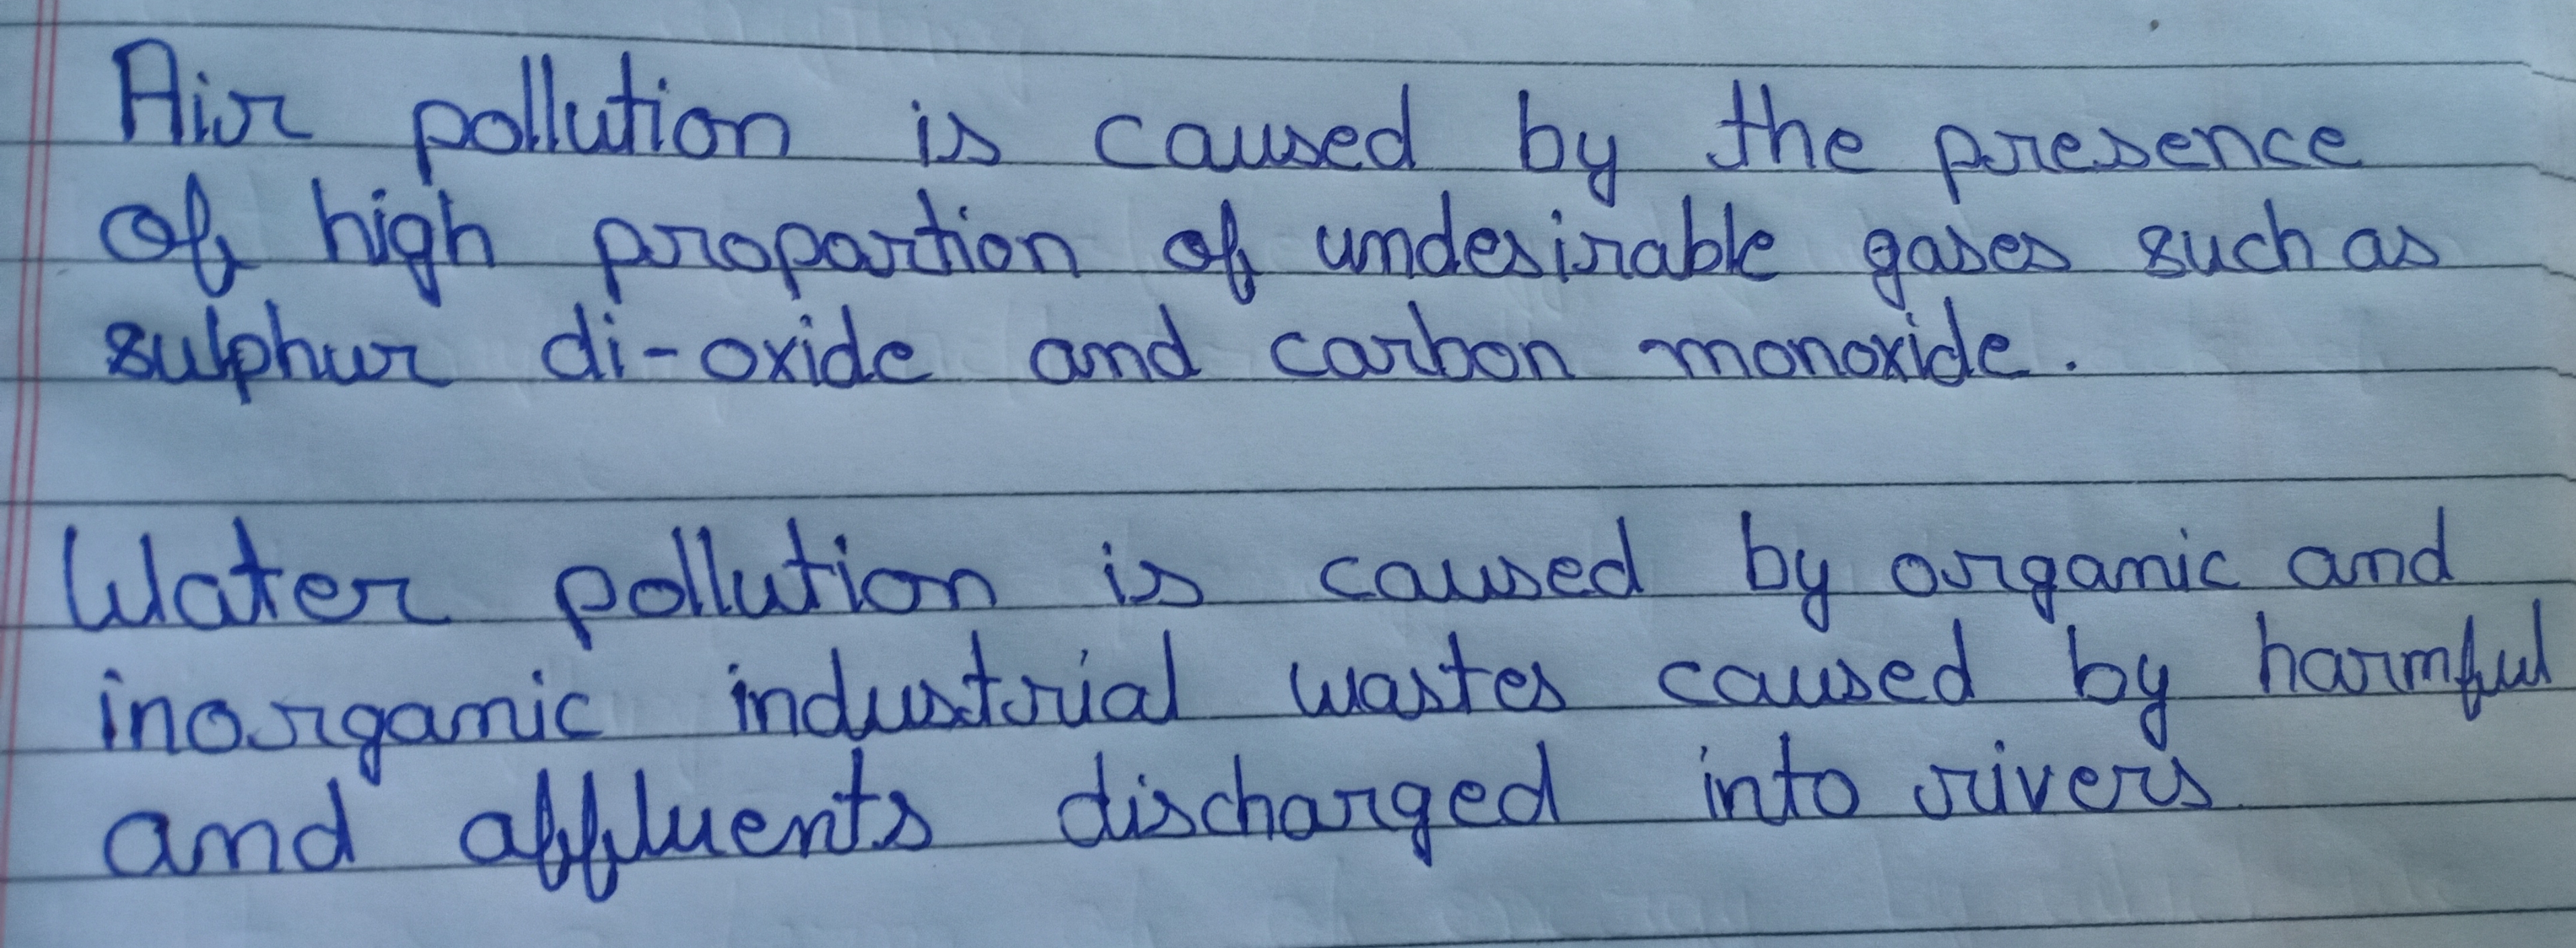 Air pollution is caused by the presence
of high proportion of undesirable gases such as
sulphur di-oxide and carbon monoxide.
Water pollution is caused by organic and
inorganic industrial wastes caused by harmful
and affluents discharged into rivers